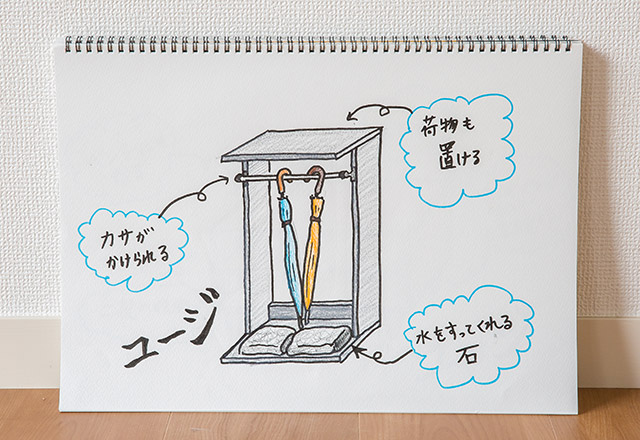 荷物も
置ける
カサが
かけられる
ユージ
水をすってくれる
石